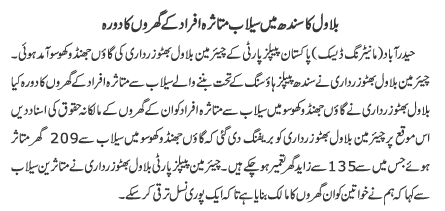 بلاول کا سندھ میں سیلاب متاثرہ افراد کے گھروں کا دورہ
حیدرآباد (مانیٹرنگ ڈیسک) پاکستان پیپلز پارٹی کے چیئرمین بلاول بھٹو زرداری کی گاؤں جھنڈو کھوسو آمد ہوئی۔
چیئرمین بلاول بھٹو زرداری نے سندھ پیپلز ہاؤسنگ کے تحت بننے والے سیلاب سے متاثرہ افراد کے گھروں کا دورہ کیا
بلاول بھٹو زرداری نے گاؤں جھنڈو کھوسو میں سیلاب سے متاثرہ افراد کو ان کے گھروں کے مالکانہ حقوق کی اسناد دیں
اس موقع پر چیئرمین بلاول بھٹو زرداری کو بریفنگ دی گئی کہ گاؤں جھنڈو کھوسو میں سیلاب سے 209 گھر متاثر
ہوئے جس میں سے 135 سے زاید گھر تعمیر ہو چکے ہیں۔ چیئرمین پیپلز پارٹی بلاول بھٹو زرداری نے متاثرین سیلاب
سے کہا کہ ہم نے خواتین کو ان گھروں کا مالک بنایا ہے تاکہ ایک پوری نسل ترقی کر سکے۔